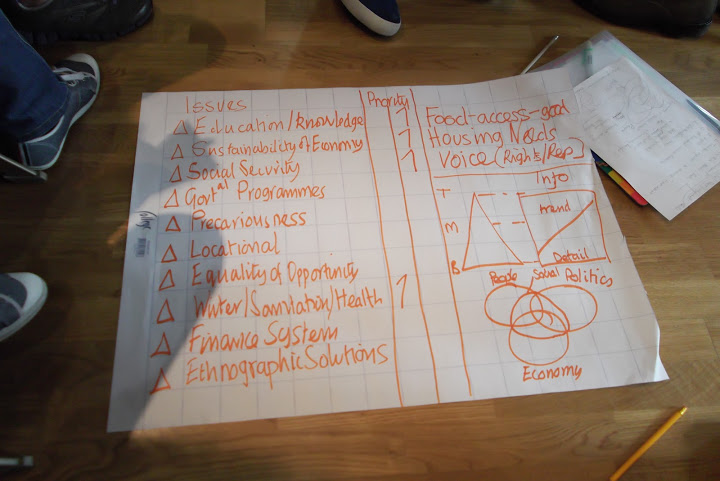 Issues
Priority
Education/Knowledge
Sustainability of Economy
Social Security
Govt'al Programmes
Precariousness
Locational
Equality of Opportunity
Water/Sanitation/Health
Finance System
Ethnographic Solutions
1
1
1
1
Food-access-good
Housing Needs
Voice (Rights/Rep)
Info
T
M
B
trend
Detail
People Social Politics
Economy